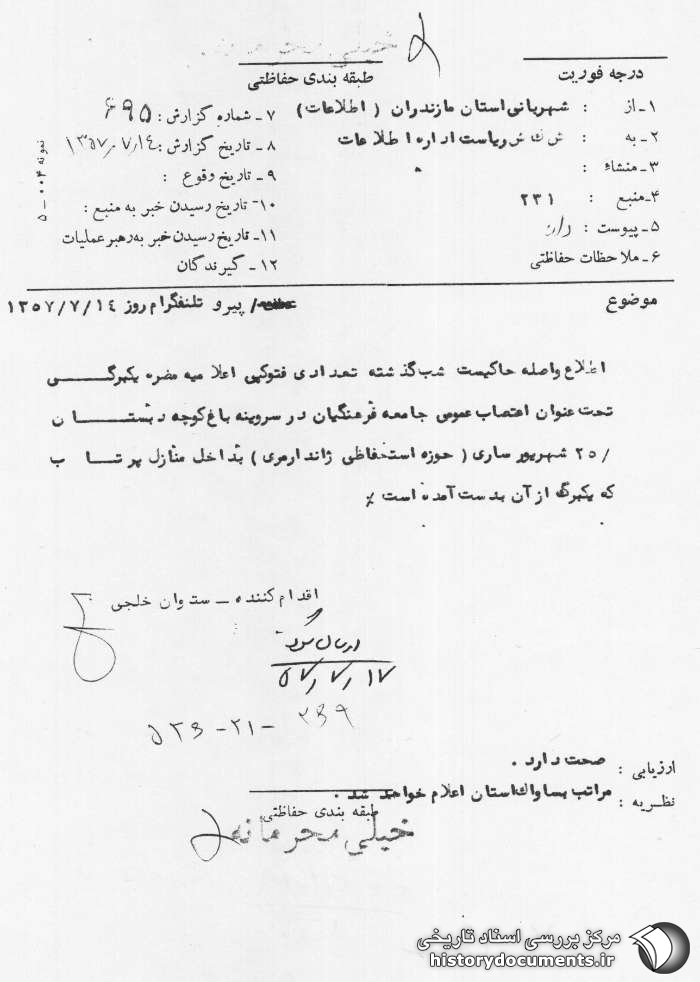 خیلی محرمانه
درجه فوریت
طبقه بندی حفاظتی
۱- از : شهربانی استان مازندران ( اطلاعات )
۲- به : ش ک ش ریاست اداره اطلاعات
۳- منشاء :
۴- منبع : ۲۳۱
۵- پیوست : دارد
۶- ملاحظات حفاظتی
۷- شماره گزارش : ۶۹۵
۸- تاریخ گزارش : ۱۳۵۷/۷/۱۴
۹- تاریخ وقوع :
۱۰- تاریخ رسیدن خبر به منبع :
۱۱- تاریخ رسیدن خبر به رهبر عملیات
۱۲- گیرندگان
نمونه ۰۰۴-۵
موضوع / پیرو تلنفگرام روز ۱۳۵۷/۷/۱۴
اطلاع واصله حاکیست شب گذشته تعدادی فتوکپی اعلامیه مضره یکبرگی
تحت عنوان اعتصاب عمومی جامعه فرهنگیان در سروینه باغ کوچه دبستان
۲۵/ شهریور ساری ( حوزه استحفاظی ژاندارمری ) بداخل منازل پرتاب
که یکبرگ از آن بدست آمده است ٪
اقدام کننده – ستوان خلجی
ارسال گردد
۵۷/۷/۱۷
ارزیابی : صحت دارد .
نظریه : مراتب بساواک استان اعلام خواهد شد .
طبقه بندی حفاظتی
خیلی محرمانه
مرکز بررسی اسناد تاریخی
historydocuments.ir